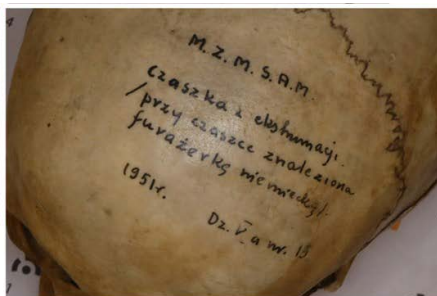 M.Z.M.S.A.M.
Czaszka z ekshumacji.
/przy czaszce znaleziona
furażerkę niemiecką/.
1951r.
Dz. V a nr. 15